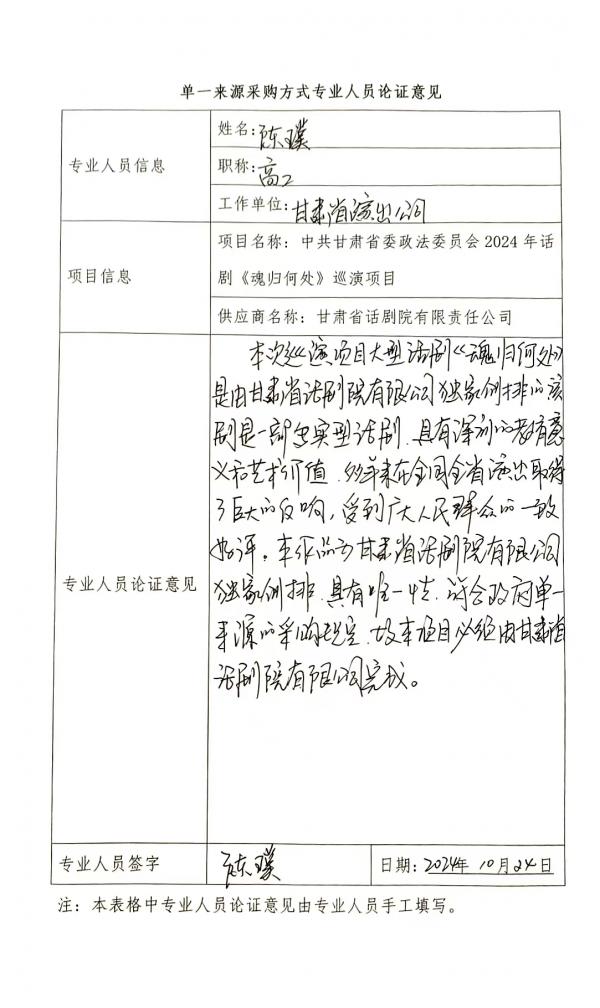 单一来源采购方式专业人员论证意见
专业人员信息
姓名：陈璞
职称：高工
工作单位：甘肃省演出公司
项目信息
项目名称：中共甘肃省委政法委员会2024年话
剧《魂归何处》巡演项目
供应商名称：甘肃省话剧院有限责任公司
专业人员论证意见
本次巡演项目大型话剧《魂归何处》
是由甘肃省话剧院有限公司独家创排的该
剧是一部史实型话剧，具有深刻的教育意
义和艺术价值，多年来在全国全省演出取得
了巨大的反响，受到广大人民群众的一致
好评。本作品为甘肃省话剧院有限公司
独家创排，具有唯一性，符合政府单一
来源的采购规定，故本项目必须由甘肃省
话剧院有限公司完成。
专业人员签字
陈璞
日期：2024年10月24日
注：本表格中专业人员论证意见由专业人员手工填写。